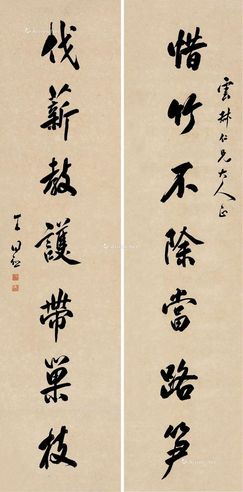 雲仁兄大人正
惜竹不除當路笋
伐薪教護帶巢枝